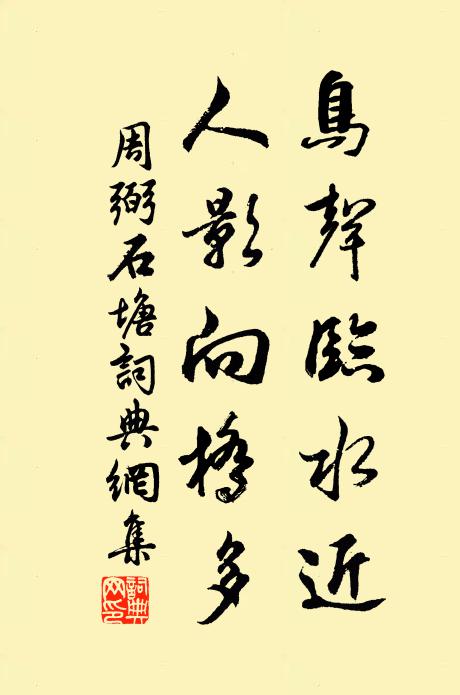 鳥聲臨水近
人影向橋多
周弼石塘詞典網集
詞典網印